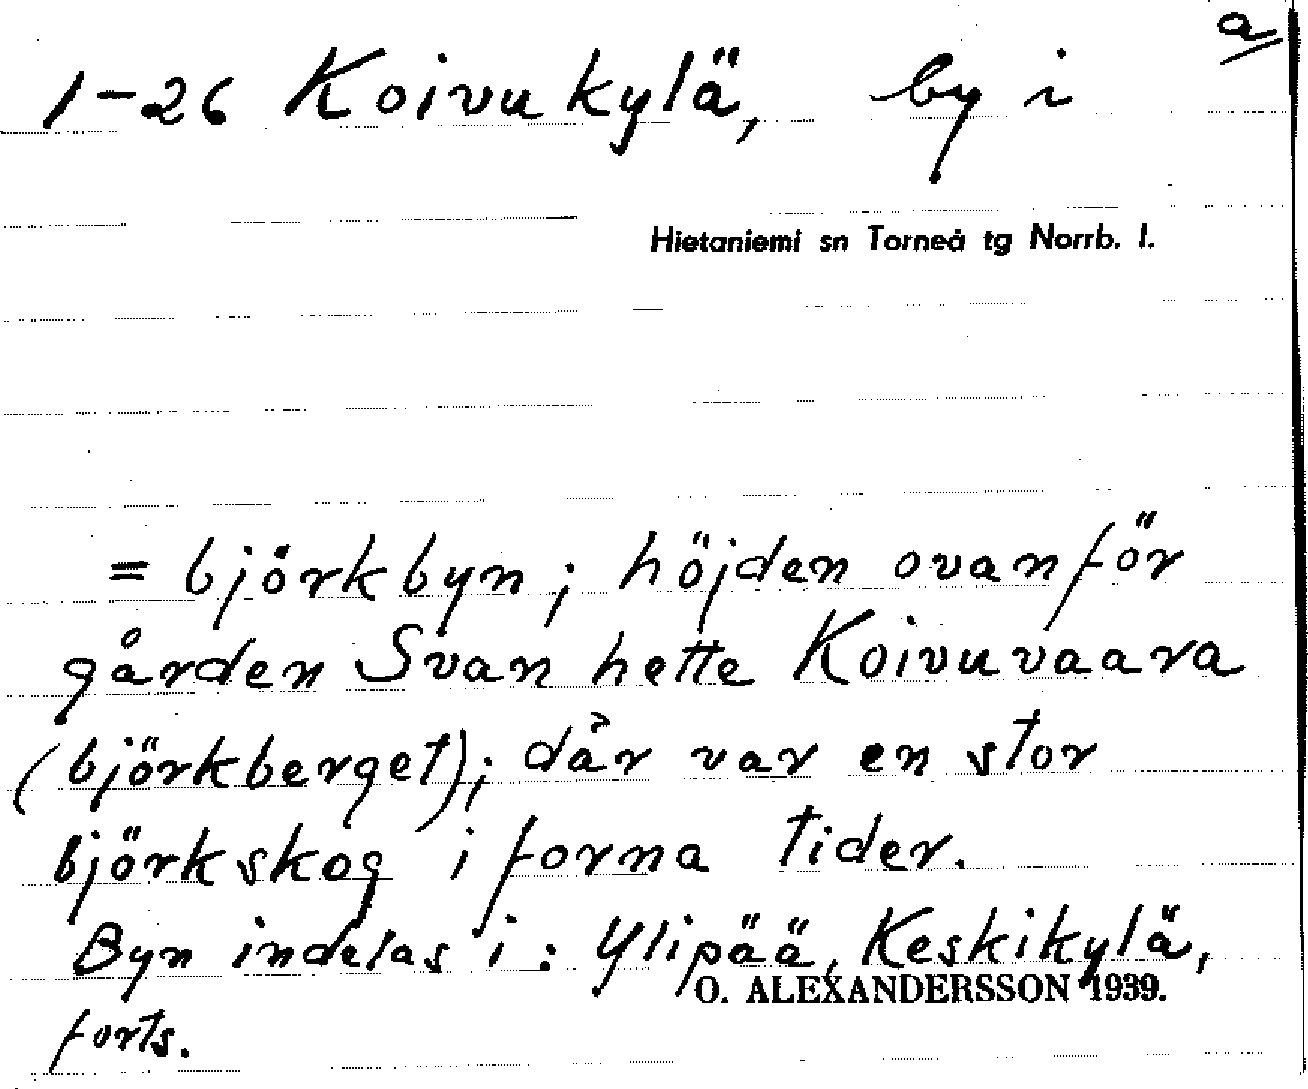 a
1-26 Koivukylä, by i
Hietaniemi sn Torneå tg Norrb. l.
= björkbyn; höjden ovanför
gården Svan hette Koivuvaara
(björkberget); där var en stor
björkskog i forna tider.
Byn indelas i: Ylipää, Keskikylä,
O. ALEXANDERSSON 1939.
forts.